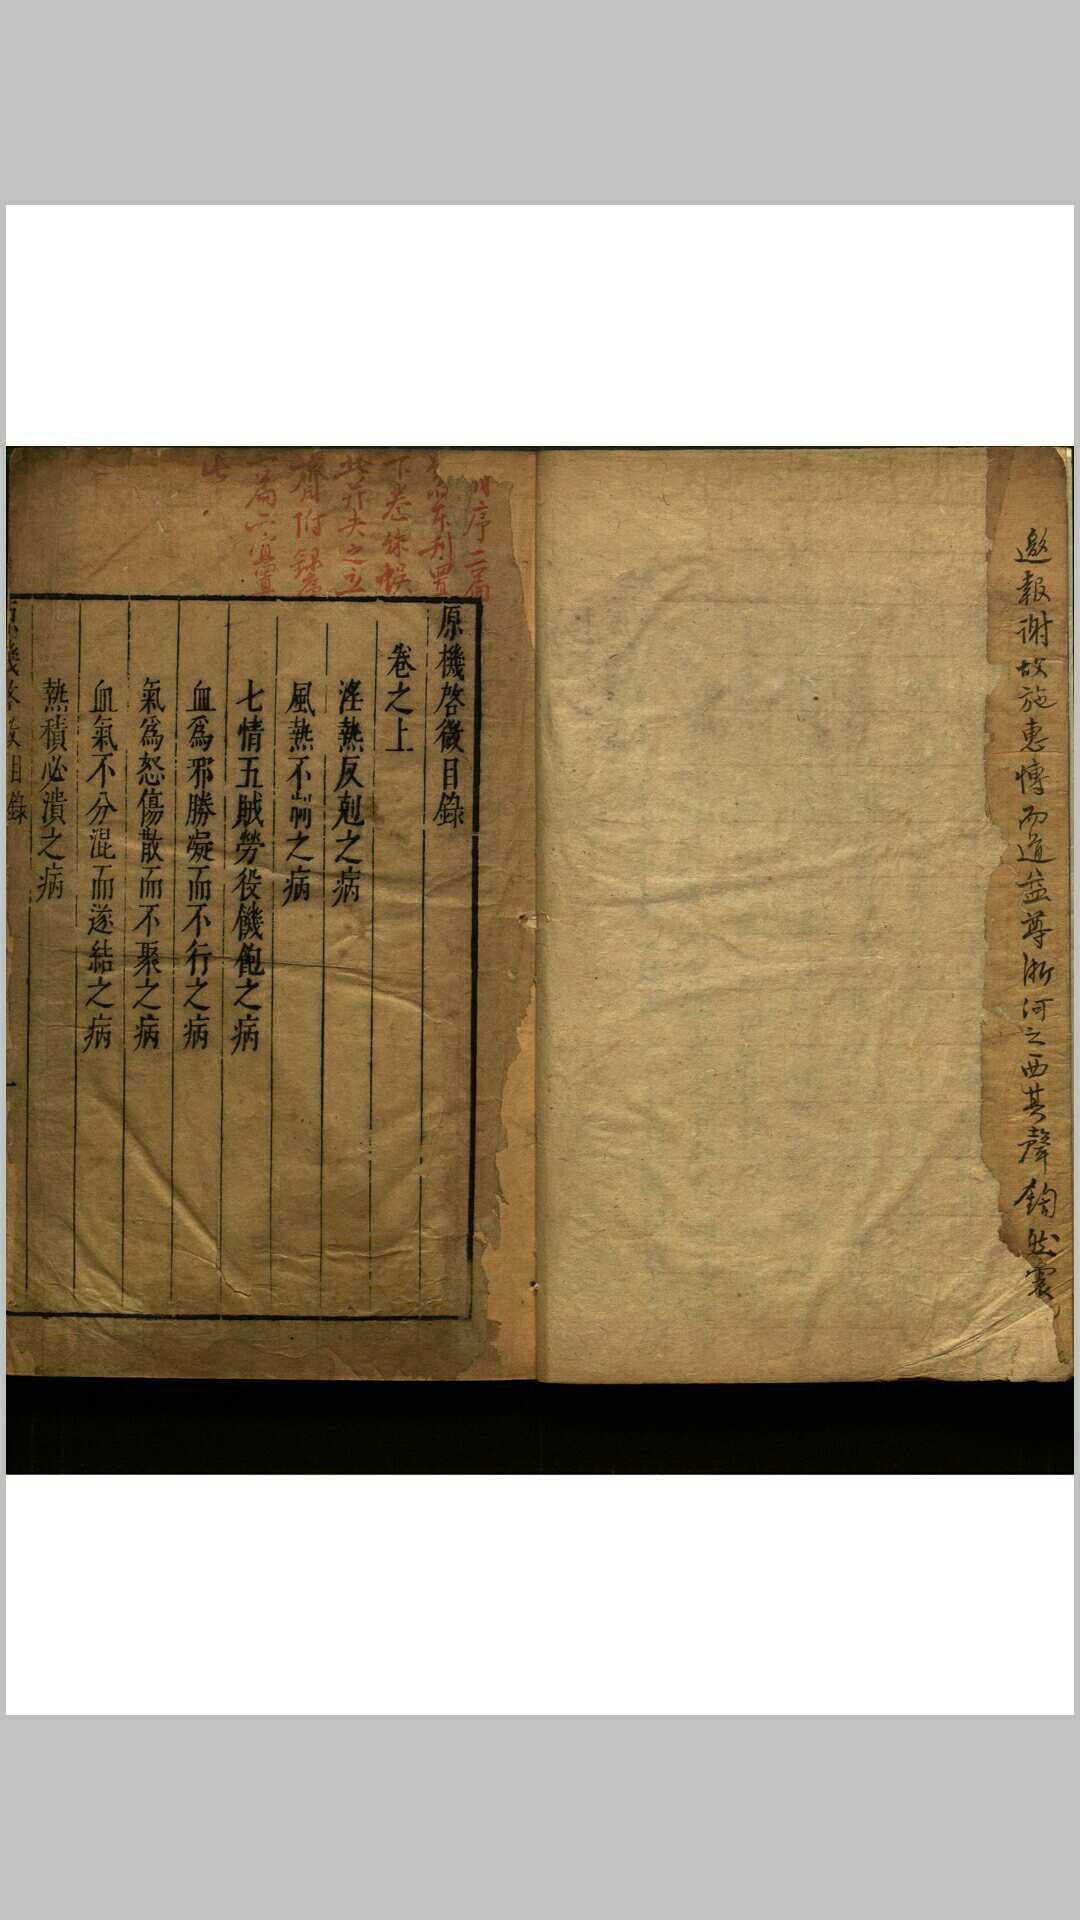 邀報謝故施惠愽而道益尊浙河之西其聲鍧然震
序二篇
刋置
下卷殊誤
此薛夫之立
齋附録
二篇六宜置
此
原機啓微目錄
卷之上
淫熱反剋之病
風熱不制之病
七情五賊勞役饑飽之病
血爲邪勝凝而不行之病
氣爲怒傷散而不聚之病
血氣不分混而遂結之病
熱積必潰之病
原機啓微目錄